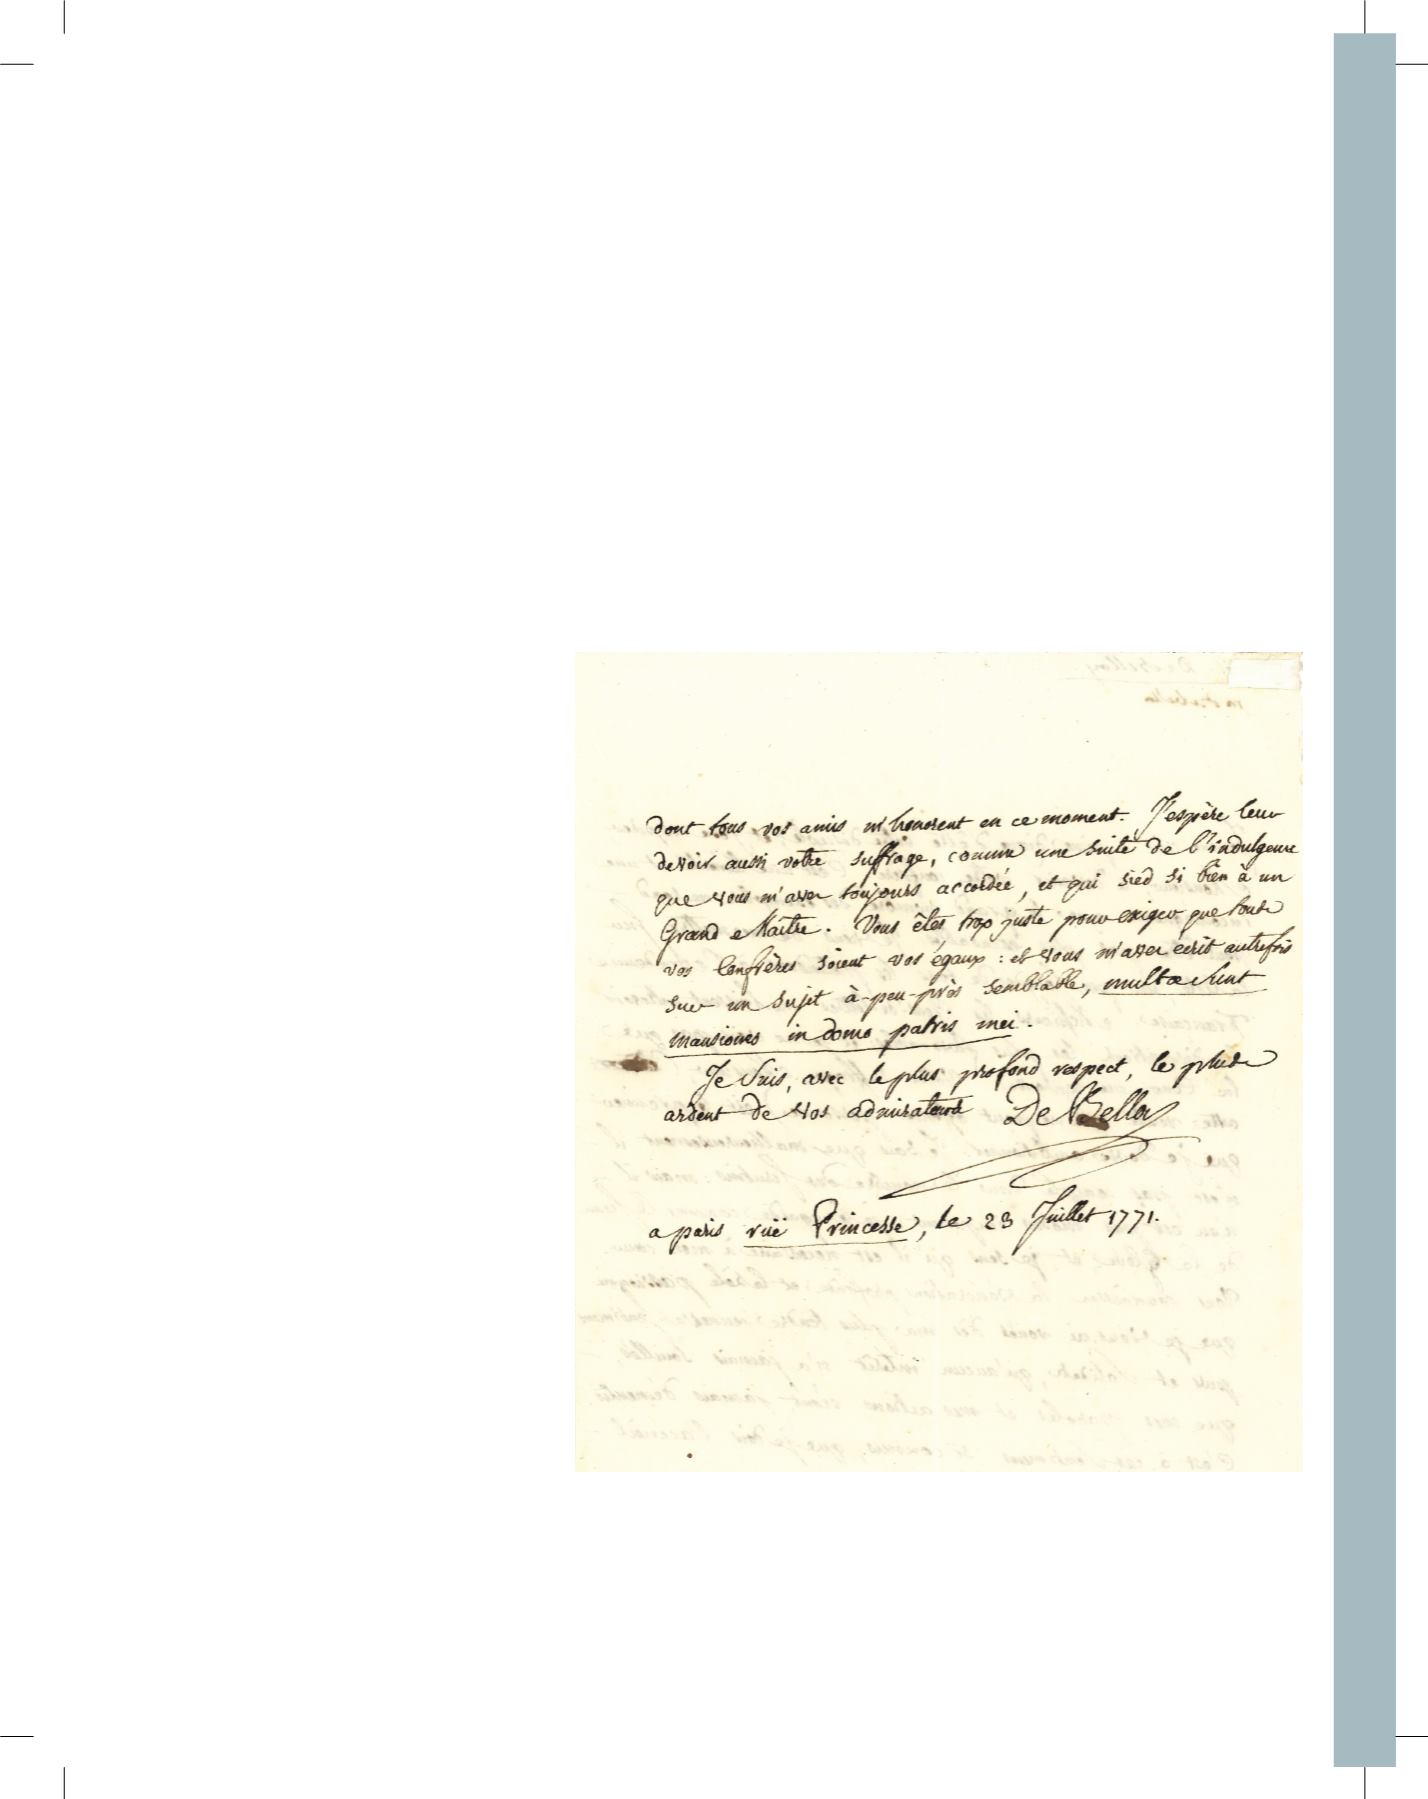 dont tous vos amis m'honorent en ce moment. J'espère leur
devoir aussi votre suffrage, comme une suite de l'indulgence
que vous m'avez toujours accordée, et qui sied si bien à un
Grand Maître. Vous êtes trop juste pour exiger que tous
vos Confrères soient vos égaux : et vous m'avez écrit autrefois
sur un sujet à-peu-près semblable, multæ sunt
mansiones in domo patris mei.
Je suis, avec le plus profond respect, le plus
ardent de vos admirateurs De Belloy
a paris ruë Princesse, le 23 Juillet 1771.